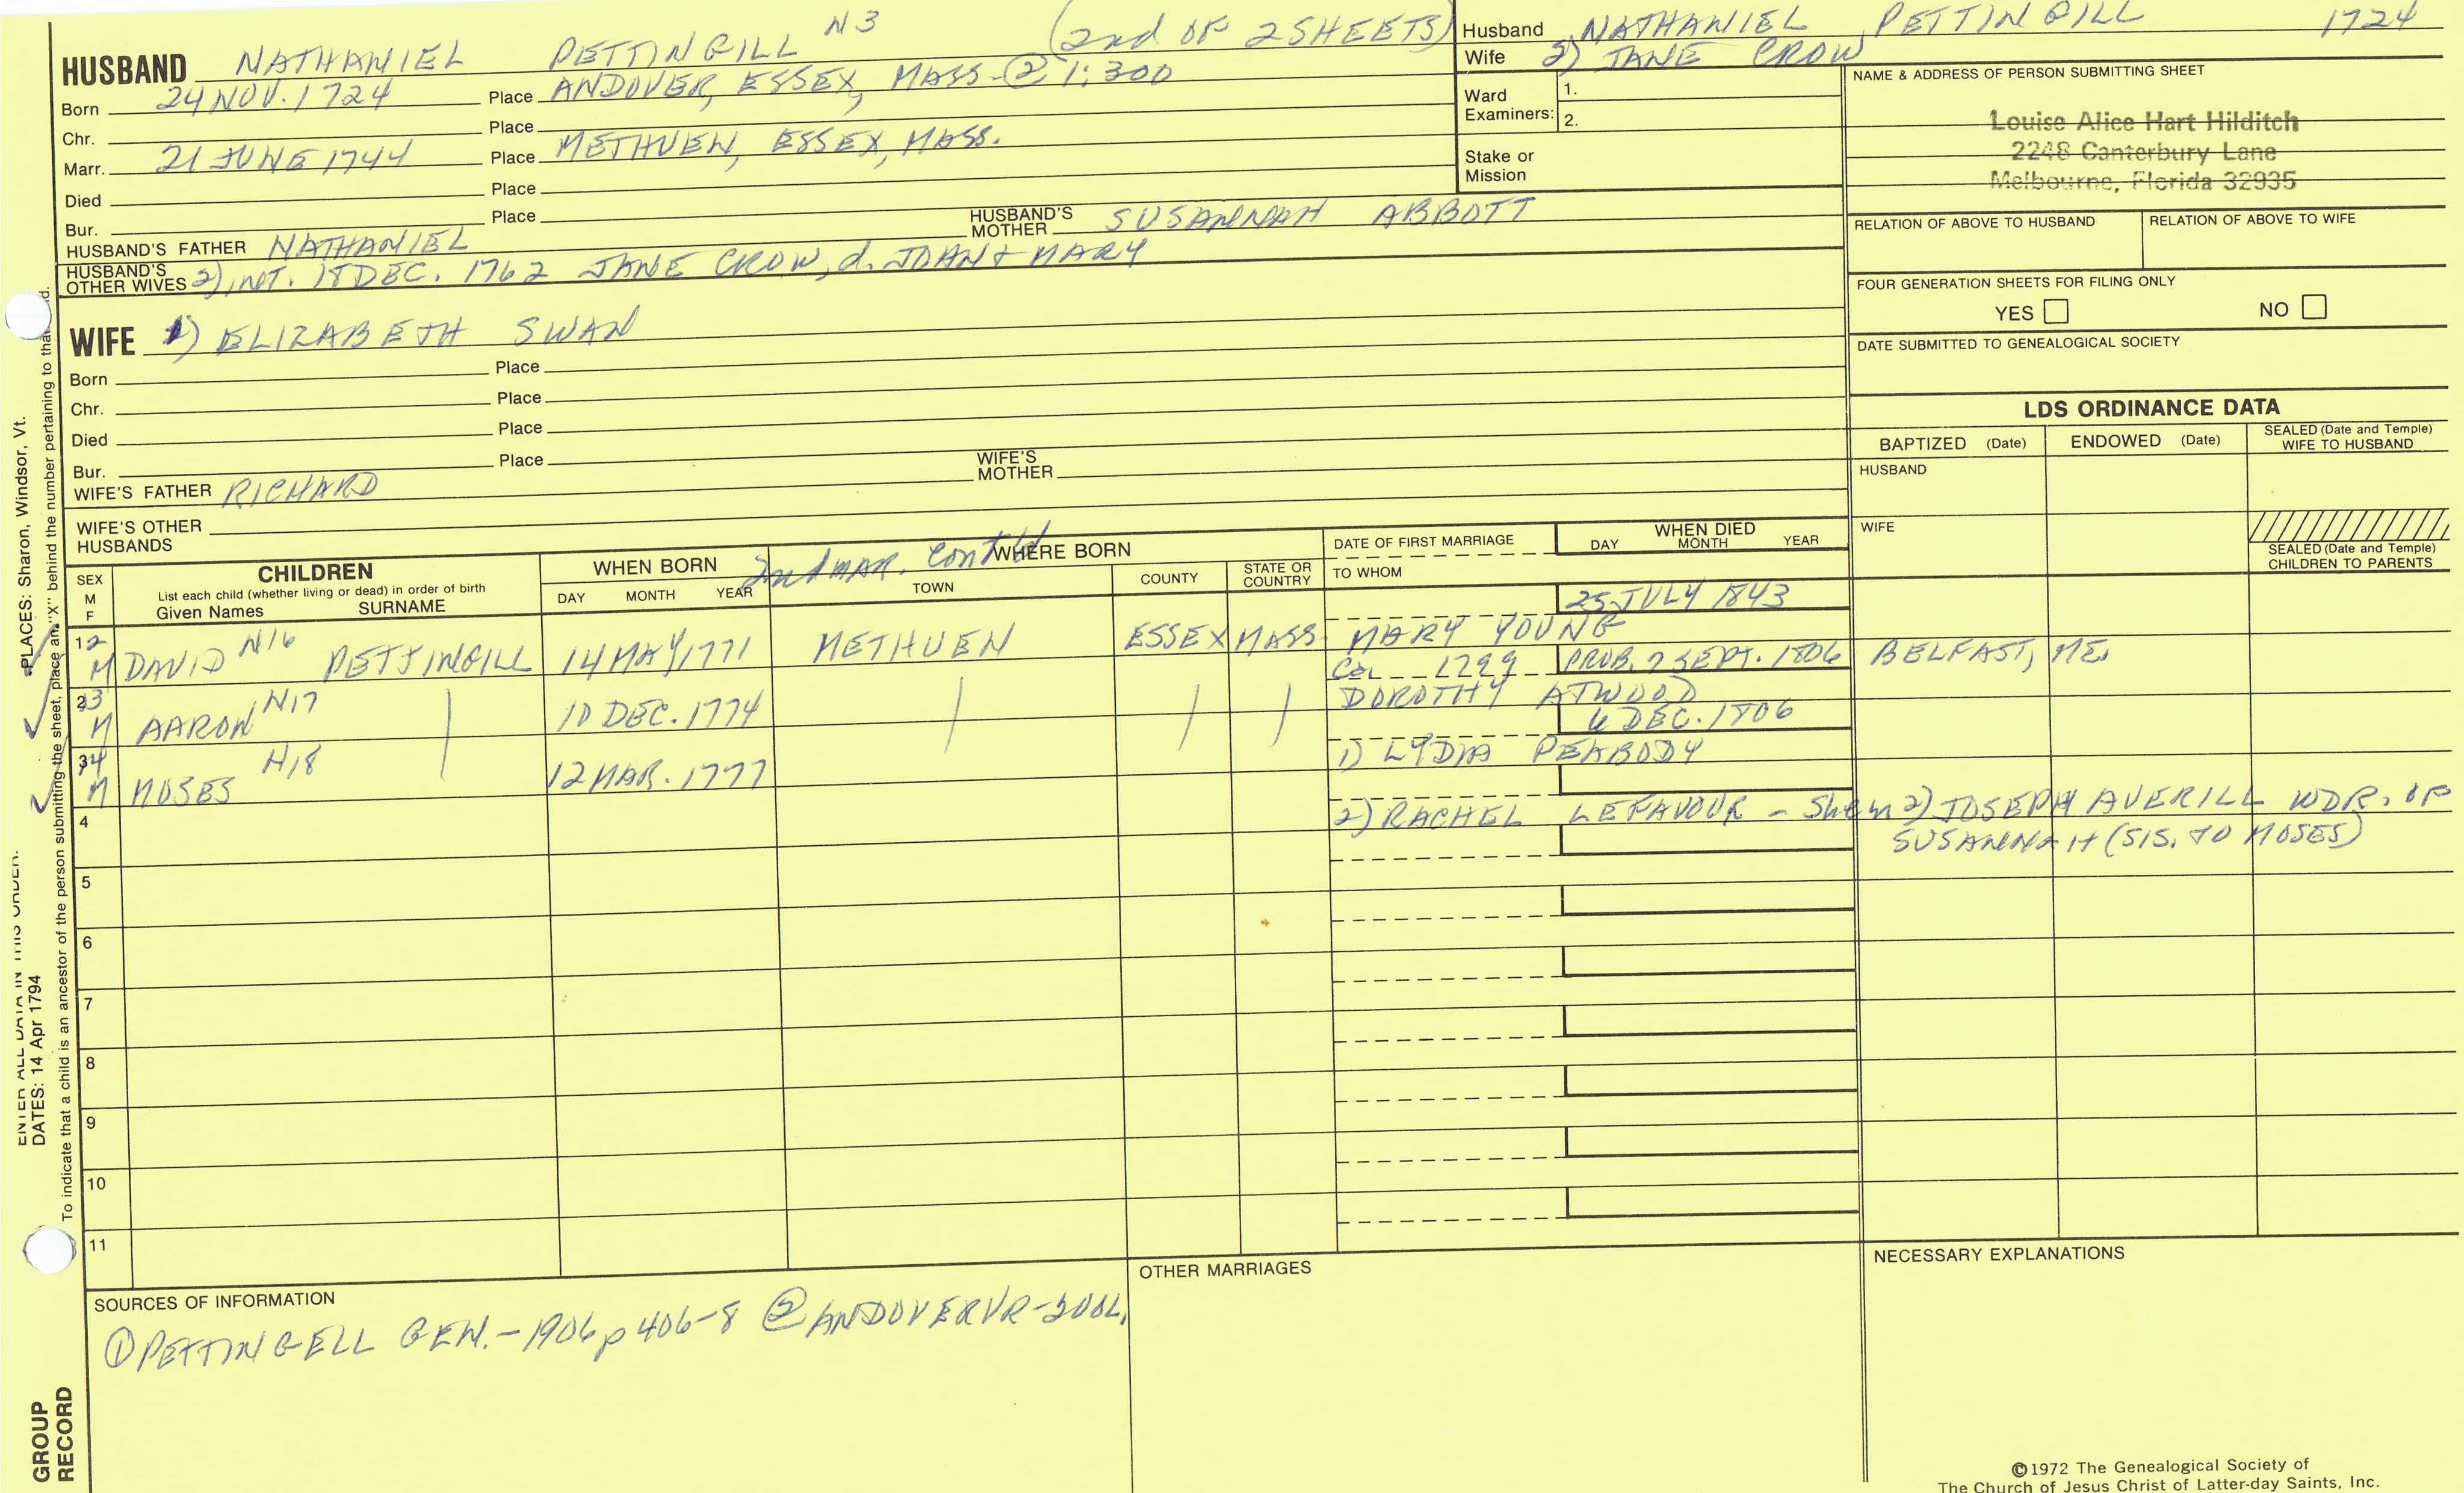 HUSBAND NATHANIEL PETTINGILL N3 (2nd OF 2 SHEETS)
Born 24 NOV. 1724 Place ANDOVER, ESSEX, MASS. ② 1:300
Chr. Place
Marr. 21 JUNE 1744 Place METHUEN, ESSEX, MASS.
Died Place
Bur. Place
HUSBAND'S FATHER NATHANIEL HUSBAND'S MOTHER SUSANNAH ABBOTT
HUSBAND'S OTHER WIVES 2) INT. 18 DEC. 1762 JANE CROW, d. JOHN + MARY
WIFE 1) ELIZABETH SWAN
Born Place
Chr. Place
Died Place
Bur. Place
WIFE'S FATHER RICHARD WIFE'S MOTHER
WIFE'S OTHER HUSBANDS
Husband NATHANIEL PETTINGILL 1724
Wife 2) JANE CROW
Ward Examiners: 1.
2.
Stake or Mission
NAME & ADDRESS OF PERSON SUBMITTING SHEET
Louise Alice Hart Hilditch
2248 Canterbury Lane
Melbourne, Florida 32935
RELATION OF ABOVE TO HUSBAND RELATION OF ABOVE TO WIFE
FOUR GENERATION SHEETS FOR FILING ONLY
YES NO
DATE SUBMITTED TO GENEALOGICAL SOCIETY
LDS ORDINANCE DATA
BAPTIZED (Date) ENDOWED (Date) SEALED (Date and Temple) WIFE TO HUSBAND
HUSBAND
WIFE
SEALED (Date and Temple) CHILDREN TO PARENTS
2nd MAR. Cont'd
SEX M F
CHILDREN
List each child (whether living or dead) in order of birth
Given Names SURNAME
WHEN BORN
DAY MONTH YEAR
WHERE BORN
TOWN COUNTY STATE OR COUNTRY
DATE OF FIRST MARRIAGE
TO WHOM
WHEN DIED
DAY MONTH YEAR
25 JULY 1843
12 M DAVID N16 PETTINGILL 14 MAY 1771 METHUEN ESSEX MASS. MARY YOUNG
Ca 1799 PROB. 7 SEPT. 1806 BELFAST, ME.
13 M AARON N17 10 DEC. 1774 DOROTHY ATWOOD
6 DEC. 1806
14 M MOSES N18 12 MAR. 1777 1) LYDIA PEABODY
4 2) RACHEL LEFAVOUR - She m 2) JOSEPH AVERILL WDR. OF
SUSANNAH (SIS. TO MOSES)
5
6
7
8
9
10
11
SOURCES OF INFORMATION
① PETTINGELL GEN. - 1906 p 406-8 ② ANDOVER VR-
OTHER MARRIAGES
NECESSARY EXPLANATIONS
©1972 The Genealogical Society of
The Church of Jesus Christ of Latter-day Saints, Inc.
PLACES: Sharon, Windsor, Vt.
ENTER ALL DATA IN THIS ORDER:
DATES: 14 Apr 1794
To indicate that a child is an ancestor of the person submitting the sheet, place an "X" behind the number pertaining to that
GROUP RECORD